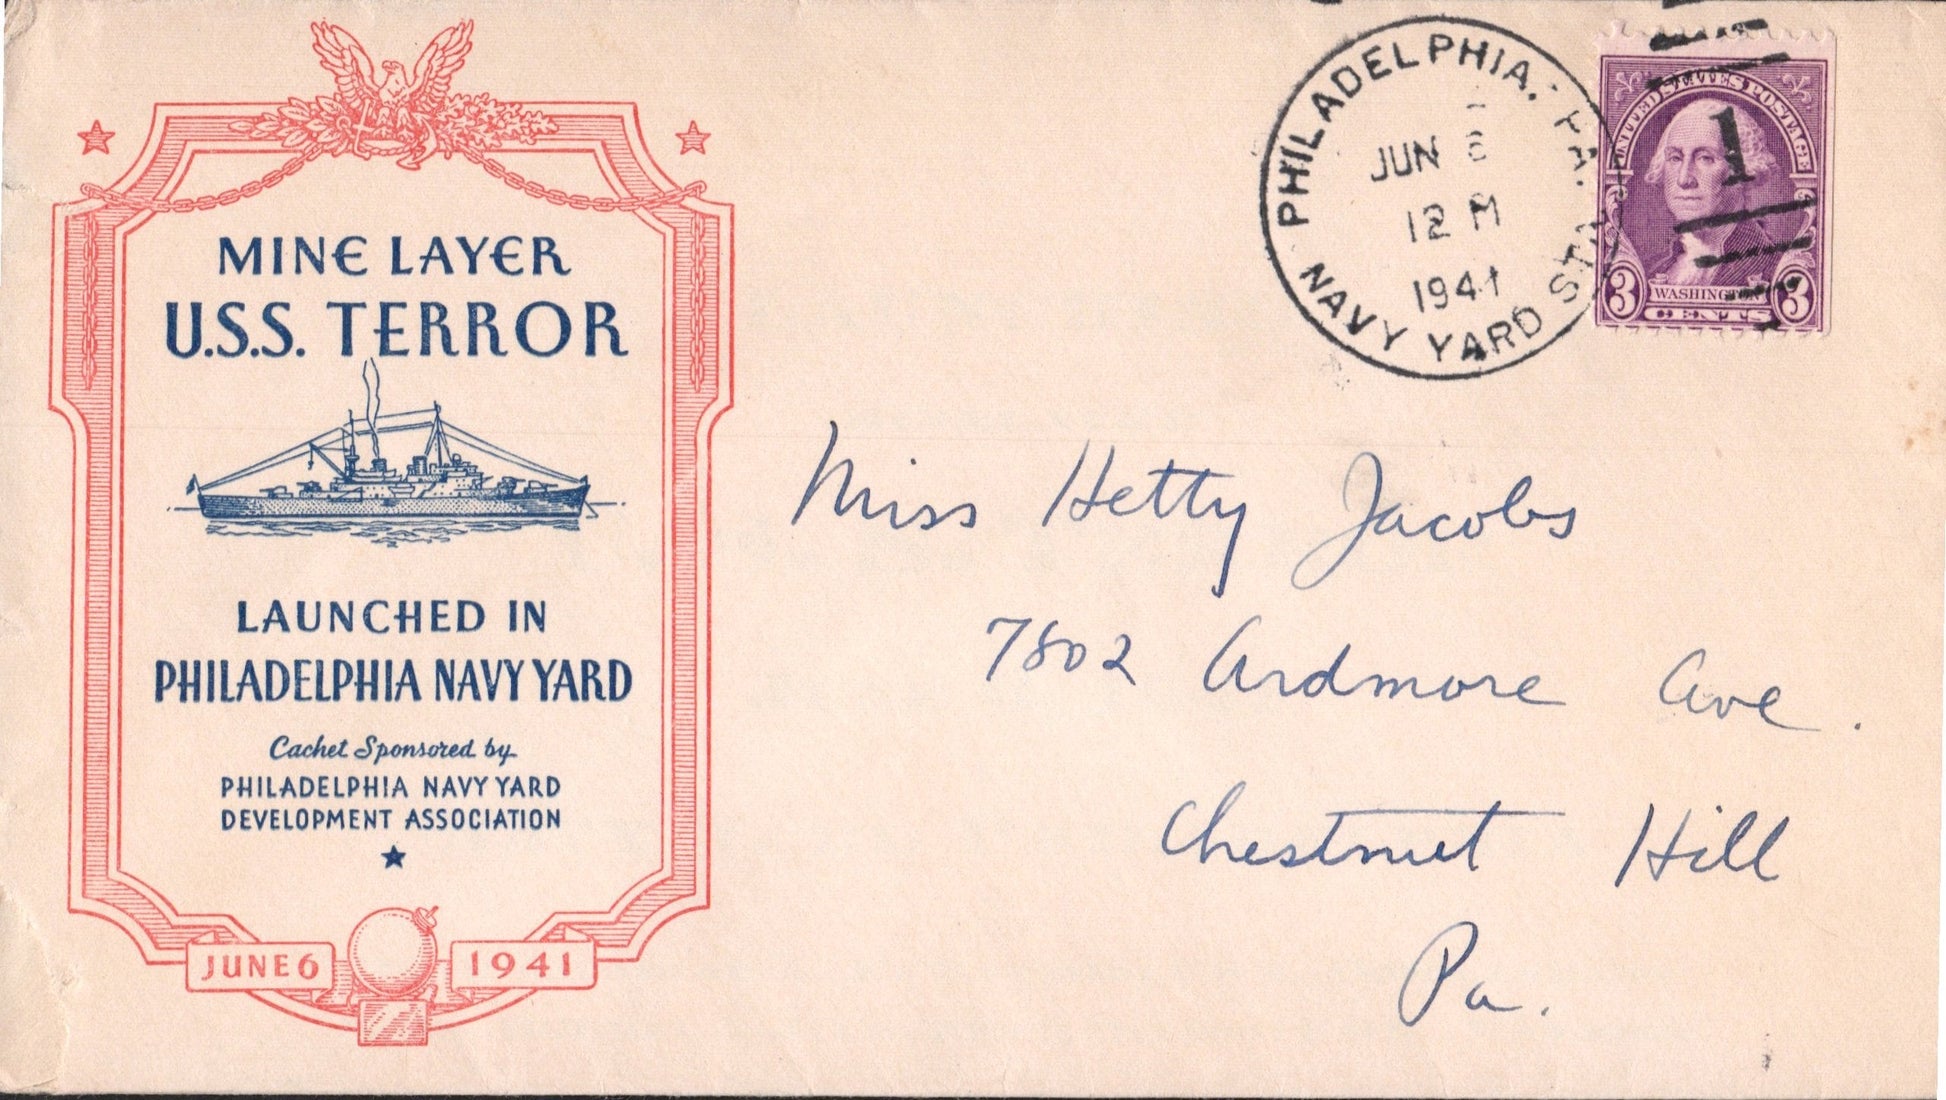 MINE LAYER
U.S.S. TERROR
LAUNCHED IN
PHILADELPHIA NAVY YARD
Cachet Sponsored by
PHILADELPHIA NAVY YARD
DEVELOPMENT ASSOCIATION
JUNE 6 1941
PHILADELPHIA, PA.
JUN 6
12 M
1941
NAVY YARD STA.
UNITED STATES POSTAGE
1
3 WASHINGTON 3
CENTS
Miss Hetty Jacobs
7802 Ardmore Ave.
Chestnut Hill
Pa.